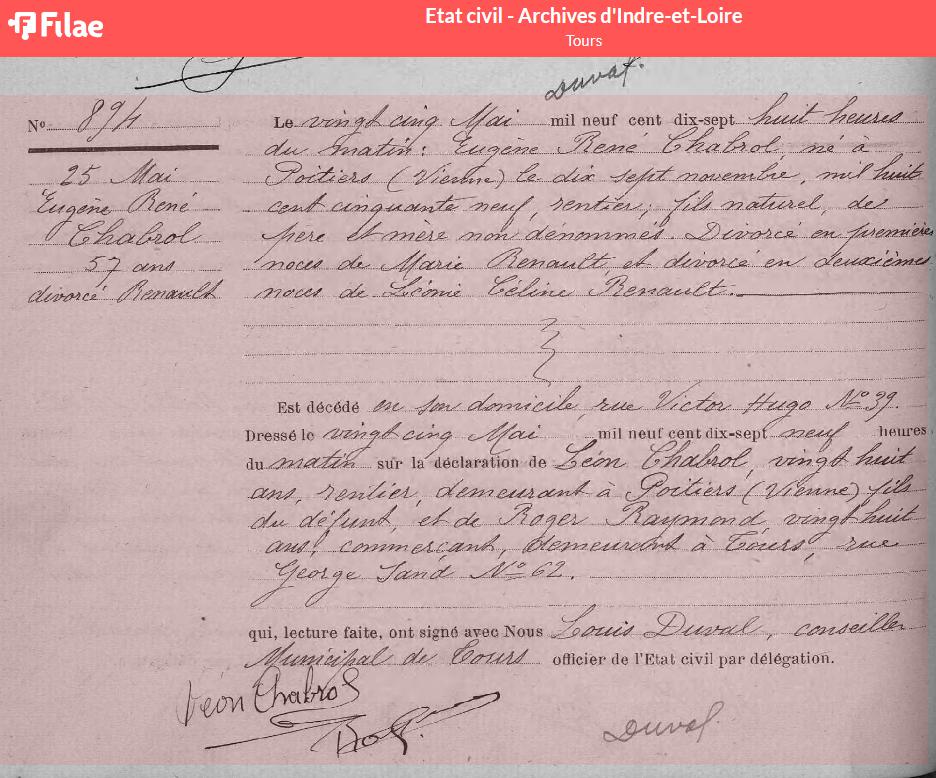 Filae
Etat civil - Archives d'Indre-et-Loire
Tours
Duval.
N° 894
25 Mai
Eugène René
Chabrol
57 ans
divorcé Renault
Le vingt cinq Mai mil neuf cent dix-sept huit heures
du matin: Eugène René Chabrol, né à
Poitiers (Vienne) le dix sept novembre, mil huit
cent cinquante neuf, rentier; fils naturel, des
père et mère non dénommés. Divorcé en premières
noces de Marie Renault, et divorcé en deuxièmes
noces de Léonie Céline Renault.
Est décédé en son domicile, rue Victor Hugo N° 39.
Dressé le vingt cinq Mai mil neuf cent dix-sept neuf heures
du matin sur la déclaration de Léon Chabrol, vingt huit
ans, rentier, demeurant à Poitiers (Vienne) fils
du défunt, et de Roger Raymond, vingt huit
ans, commerçant, demeurant à Tours, rue
George Sand N° 62.
qui, lecture faite, ont signé avec Nous Louis Duval, conseiller
Municipal de Tours officier de l'Etat civil par délégation.
Léon Chabrol
Duval